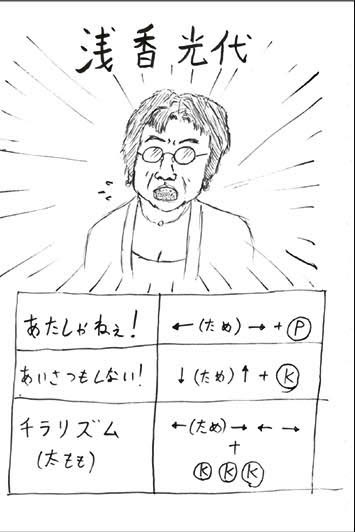 浅香光代
あたしゃねぇ! ←(ため)→+Ⓟ
あいさつもしない! ↓(ため)↑+Ⓚ
チラリズム
(太もも)
←(ため)→←→
+
ⓀⓀⓀ